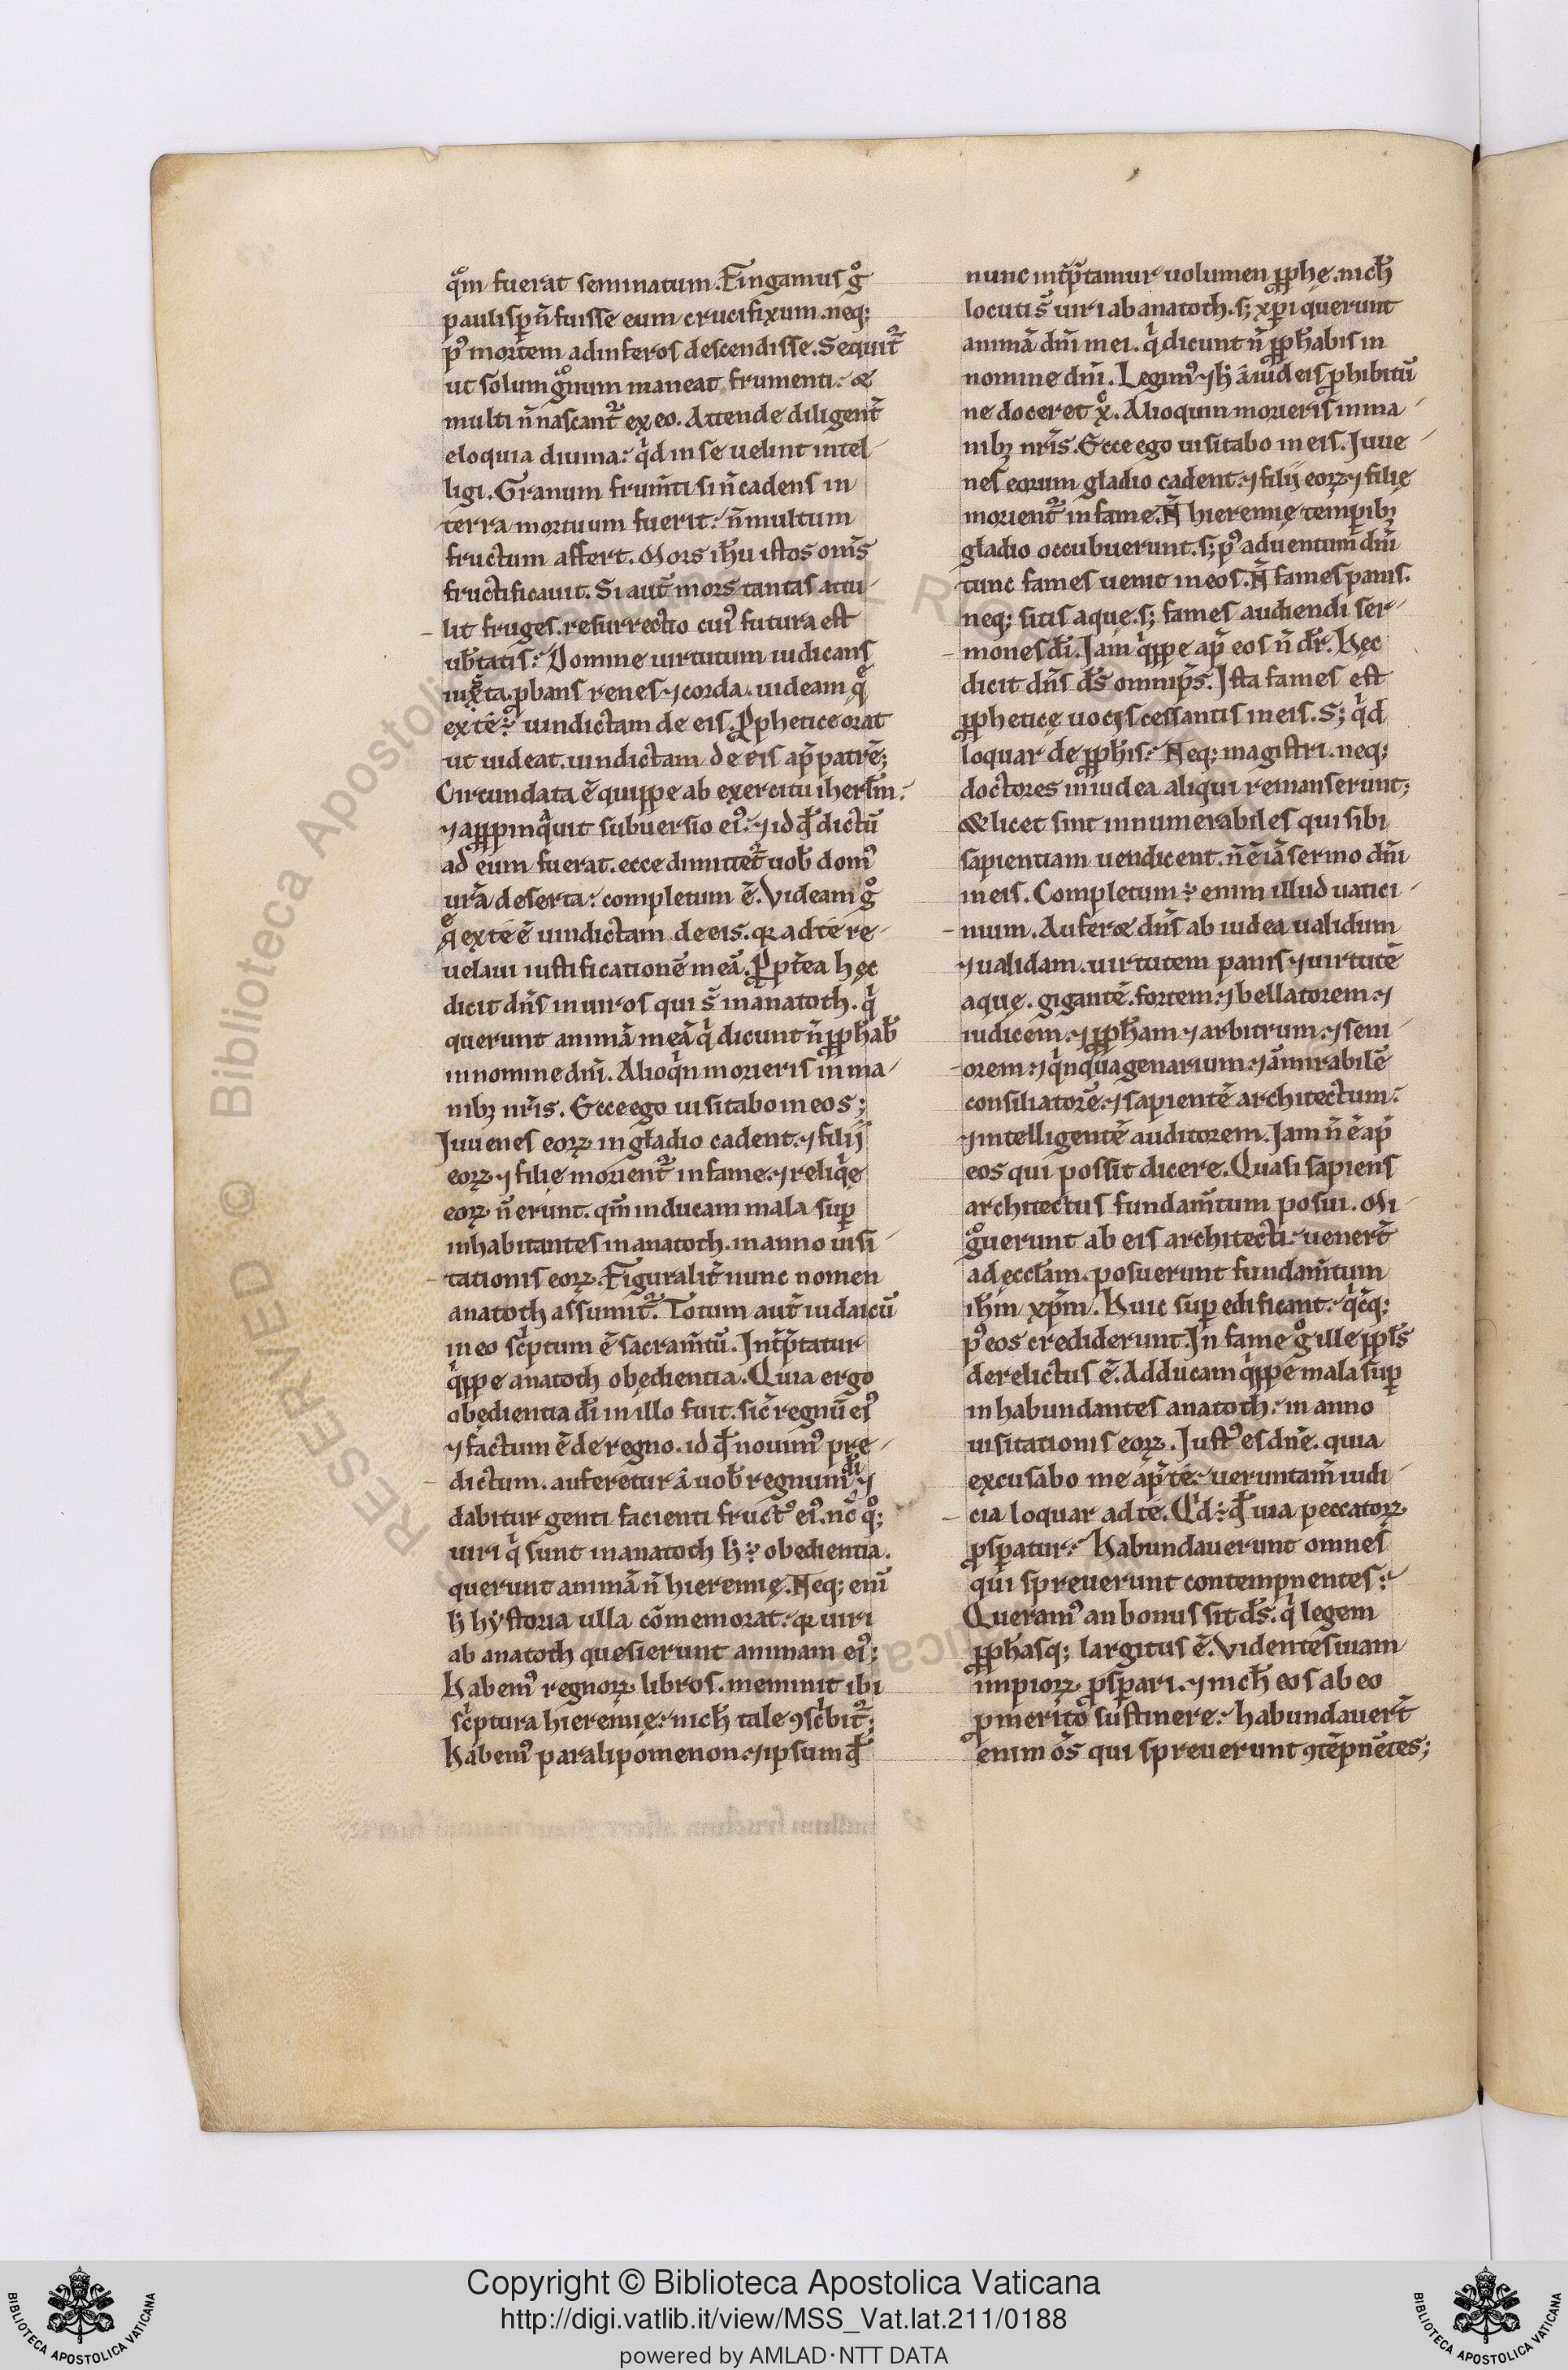 qͦm fuerat seminatum. Fingamus gͦ
paulisꝑ n̄ fuisse eum crucifixum. neq;
pꝰ mortem ad inferos descendisse. Sequit᷑
ut solum gͣnum maneat frumenti. &
multi n̄ nascant᷑ ex eo. Attende diligent̄
eloquia diuina. qͥd in se uelint intel-
ligi. Granum frum̄ti si n̄ cadens in
terra mortuum fuerit. n̄ multum
fructum affert. Mors ih̄u istos om̄s
fructificauit. Si aut̄ mors tantas attu-
lit fruges. resurrectio cuiꝰ futura est
ub̄tatis. Domine uirtutum iudicans
iuxta. ꝓbans renes ⁊ corda. uideam qͤ
ex te ÷ uindictam de eis. Ꝓphetice orat
ut uideat. uindictam de eis ap̄ patrē;
Circundata ē quippe ab exercitu iherl̄m.
⁊ appinqͣuit subuersio eiꝰ. ⁊ id qđ dictū
ad eum fuerat. ecce dimittet᷑ uob̄ domꝰ
ur̄a deserta. completum ē. Videam gͦ
qͤ ex te ē uindictam de eis. qꝛ ad te re-
uelaui iustificationē meā. Ꝓpt̄ea hęc
dicit dn̄s in uiros qui s̄ in anatoth. qͥ
querunt animā meā qͥ dicunt n̄ ꝓph̄ab̄
in nomine dn̄i. Alioqͥn morieris in ma-
nibꝫ nr̄is. Ecce ego uisitabo in eos;
Juuenes eoꝝ in gladio cadent. ⁊ filij
eoꝝ ⁊ filie morient᷑ in fame. ⁊ reliqͥe
eoꝝ n̄ erunt. qm̄ inducam mala suꝑ
inhabitantes in anatoth. in anno uisi-
tationis eoꝝ. Figuralit̄ nunc nomen
anatoth assumit᷑. Totum aut̄ iudaicū
in eo scͥptum ē sacram̄tū. Int̄p̄tatur
qͥppe anatoth obędientia. Quia ergo
obędientia dī in illo fuit. sic̄ regnū eiꝰ
⁊ factum ē de regno. id qđ nouimꝰ pre-
dictum. auferetur a uob̄ regnum dī ⁊
dabitur genti facienti fructꝰ eiꝰ. nc̄ qͦ;
uiri qͥ sunt in anatoth h̄ ÷ obedientia.
querunt animā n̄ hieremię. Neq; enī
h̄ hystoria ulla cōmemorat. qꝛ uiri
ab anatoth quesierunt animam eiꝰ;
Habemꝰ regnoꝝ libros. meminit ibi
scͥptura hieremię. nich̄ tale ꝯscͥbit᷑;
Habemꝰ paralipomenon. ⁊ ipsum qđ
nunc int̄p̄tamur uolumen ꝓphę. nich̄
locuti s̄ uiri ab anatoth. s; xp̄i querunt
animā dn̄i mei. qͥ dicunt n̄ ꝓph̄abis in
nomine dn̄i. Legimꝰ ⁊ h̄ a iud̄eis ꝓhibitū
ne doceret x. Alioquin morieris in ma-
nibꝫ nr̄is. Ecce ego uisitabo in eis. Juue-
nes eorum gladio cadent. ⁊ filij eoꝝ ⁊ filię
morient᷑ in fame. N̄ hieremię tempibꝫ
gladio occubuerunt. s; pꝰ aduentum dn̄i
tunc fames uenit in eos. N̄ fames panis.
neq; sitis aque. s; fames audiendi ser-
mones dī. Jam qͥppe ap̄ eos n̄ dr̄. Hęc
dicit dn̄s ds̄ omnip̄s. Ista fames est
ꝓpheticę uocis cessantis in eis. S; qͥd
loquar de ꝓph̄is. Neq; magistri. neq;
doctores in iudea aliqui remanserunt;
& licet sint innumerabiles qui sibi
sapientiam uendicent. n̄ ē iā sermo dn̄i
in eis. Completum ÷ enim illud uatici-
nium. Aufer& dn̄s ab iudea ualidum
⁊ ualidam. uirtutem panis ⁊ uirtutē
aquę. gigantē. fortem. ⁊ bellatorem. ⁊
iudicem. ⁊ ꝓph̄am ⁊ arbitrum. ⁊ seni-
orem. ⁊ qͥnquagenarium. ⁊ am̄irabilē
consiliatorē. ⁊ sapientē architectum.
⁊ intelligentē auditorem. Jam n̄ ē ap̄
eos qui possit dicere. Quasi sapiens
architectus fundam̄tum posui. Mi-
gͣuerunt ab eis architecti. uenert̄
ad eccl̄am. posuerunt fundam̄tum
ih̄m xp̄m. Huic suꝑ edificant. qͥcq;
pꝰ eos crediderunt. In fame gͦ ille ppl̄s
derelictus ē. Adducam qͥppe mala suꝑ
inhabundantes anatoth. in anno
uisitationis eoꝝ. Justꝰ es dn̄e. quia
excusabo me ap̄ te. ueruntam̄ iudi-
cia loquar ad te. Qͥd ÷ qđ uia peccatoꝝ
ꝓsꝑatur. Habundauerunt omnes
qui spreuerunt contempnentes.
Queramꝰ an bonus sit ds̄. qͥ legem
ꝓph̄asq; largitus ē. Videntes uiam
impioꝝ ꝓsꝑari. ⁊ nich̄ eos ab eo
ꝓ merito sustinere. habundauert̄
enim ōs qui spreuerunt ꝯtēpnētes;
Copyright © Biblioteca Apostolica Vaticana
http://digi.vatlib.it/view/MSS_Vat.lat.211/0188
powered by AMLAD·NTT DATA
BIBLIOTECA APOSTOLICA VATICANA
BIBLIOTECA APOSTOLICA VATICANA